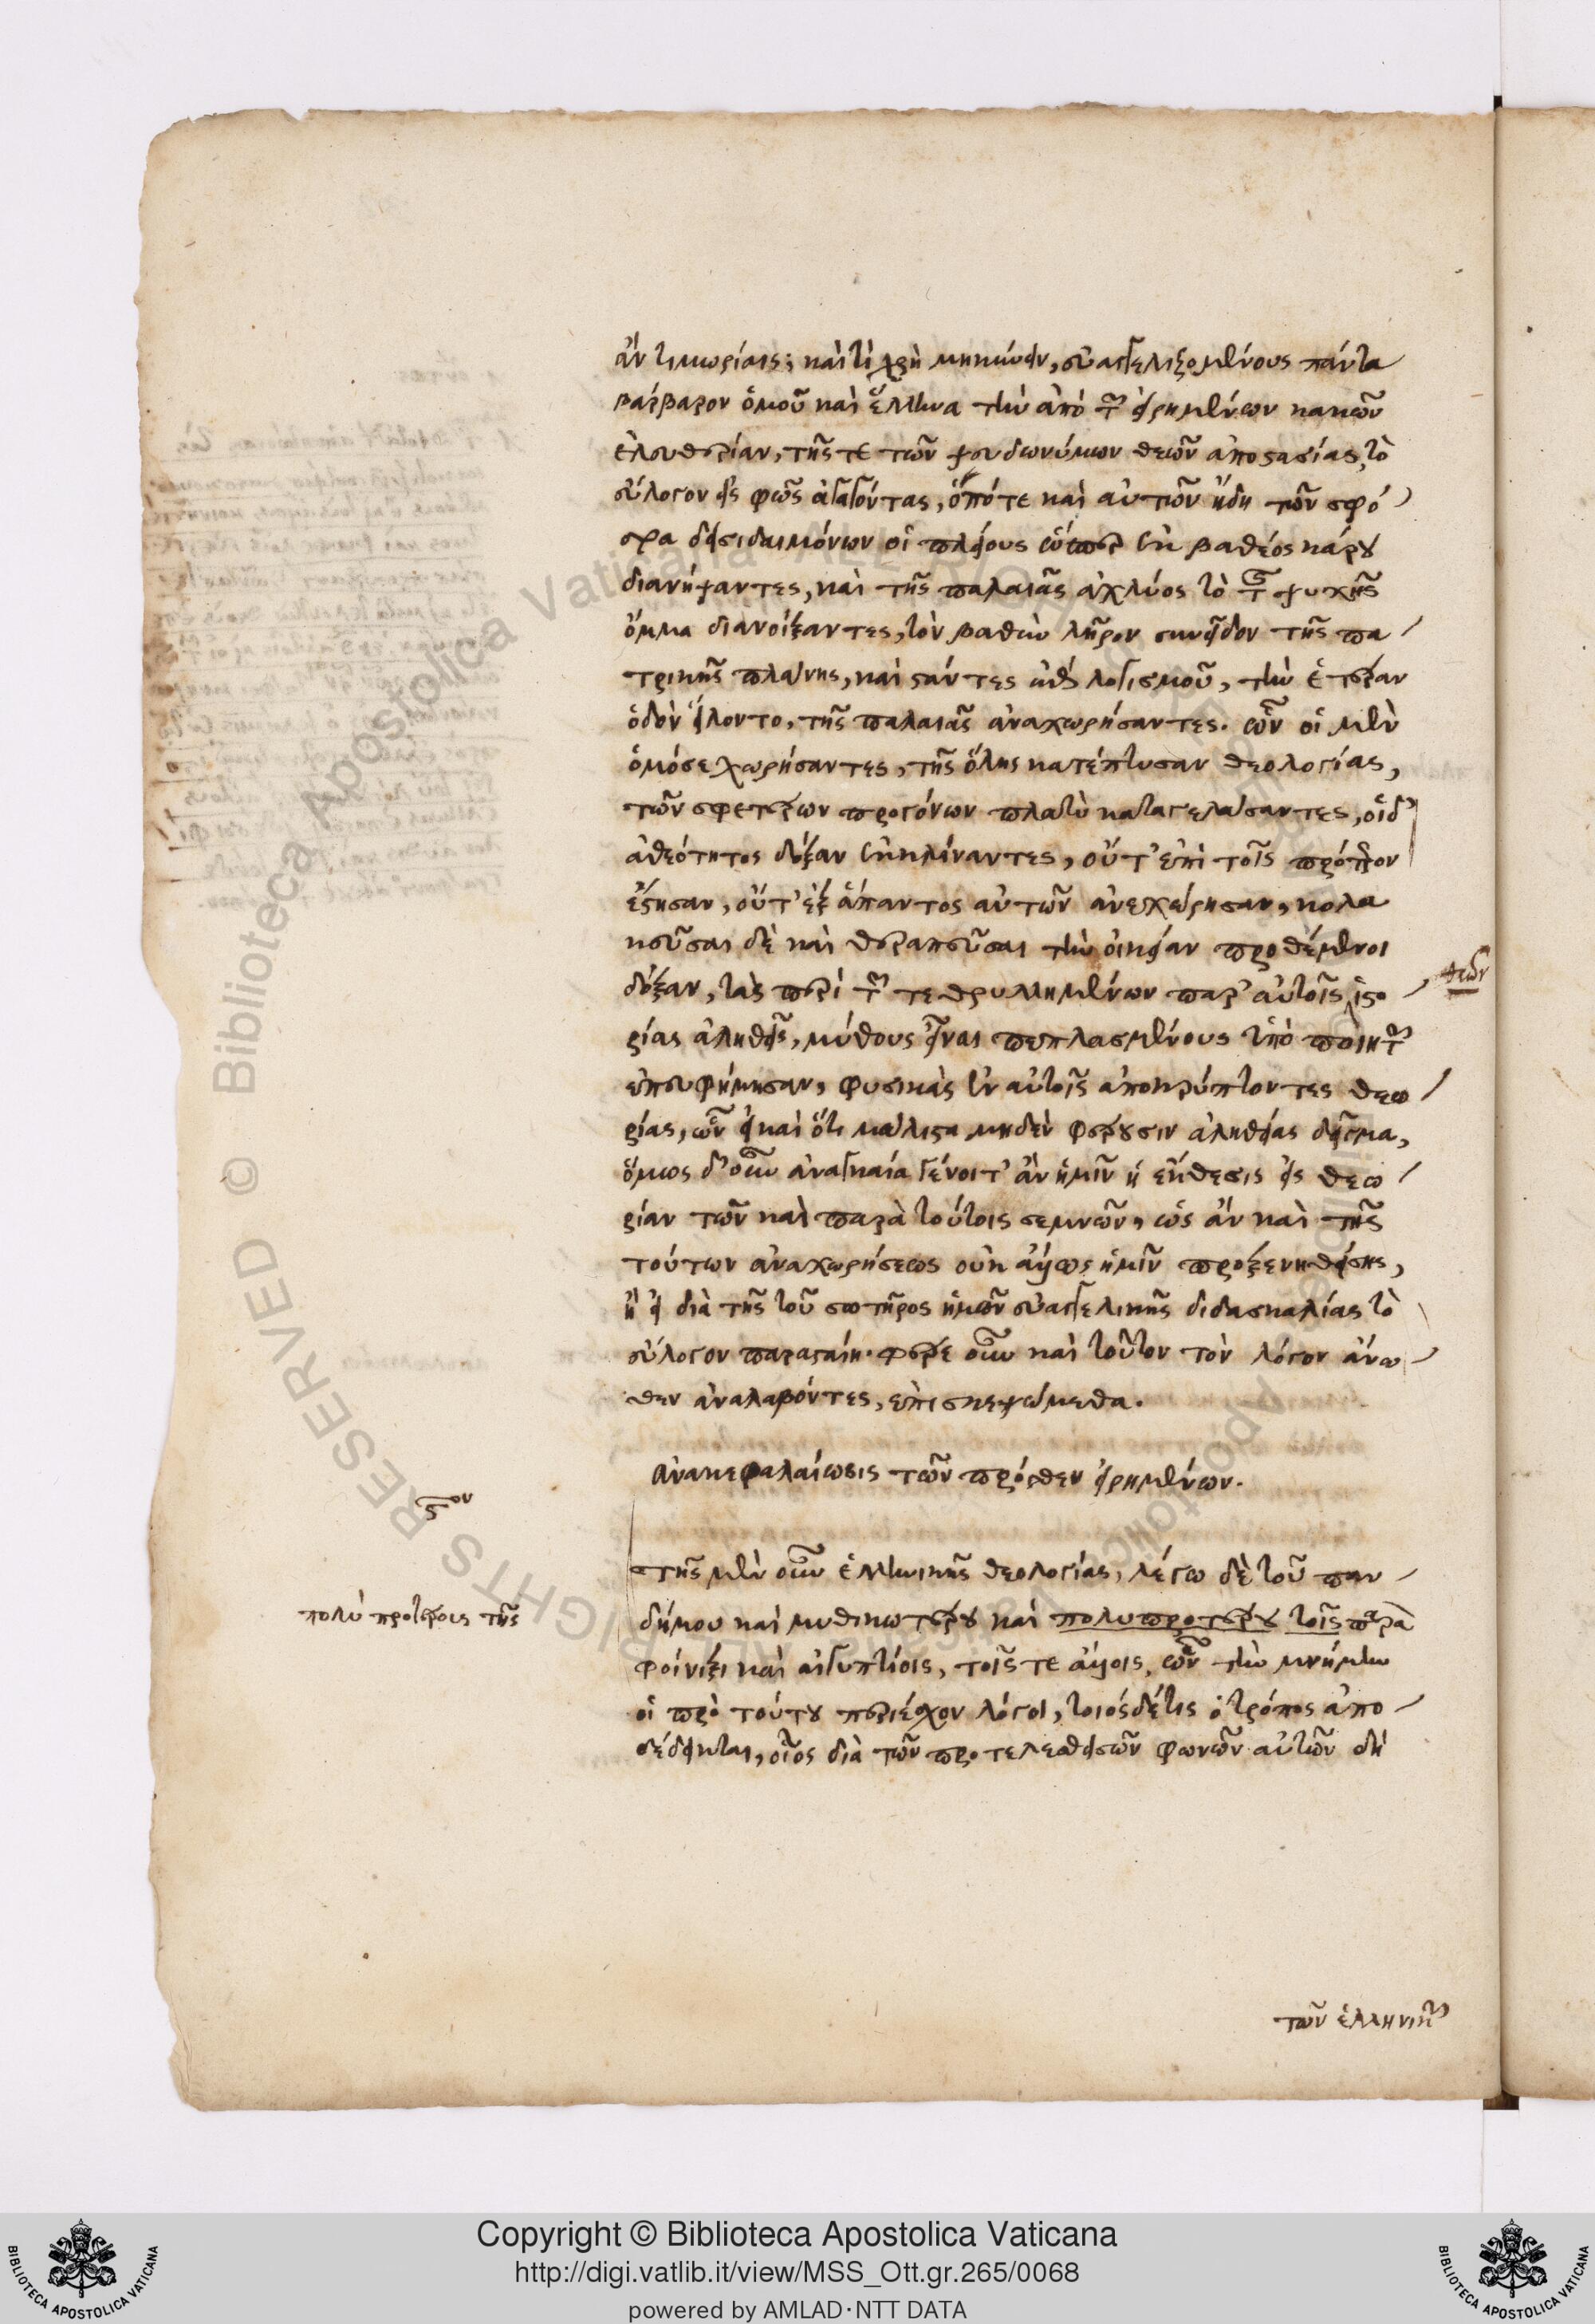 ἂν τιμωρίαις; καὶ τί χρὴ μηκύνειν, εὐαγγελιζομένους πάντα
βάρβαρον ὁμοῦ καὶ ἕλληνα τὴν ἀπὸ τῶν εἰρημένων κακῶν
ἐλευθερίαν, τῆς τε τῶν ψευδωνύμων θεῶν ἀποστασίας, τὸ
εὔλογον εἰς φῶς ἀγαγόντας, ὁπότε καὶ αὐτῶν ἤδη τῶν σφό
δρα δεισιδαιμόνων οἱ πλείους ὥσπερ ἐκ βαθέος κάρου
διανήψαντες, καὶ τῆς παλαιᾶς ἀχλύος τὸ τῆς ψυχῆς
ὄμμα διανοίξαντες, τὸν βαθὺν λῆρον συνεῖδον τῆς πα
τρικῆς πλάνης, καὶ στάντες λογισμοῦ, τὴν ἑτέραν
ὁδὸν εἵλοντο, τῆς παλαιᾶς ἀναχωρήσαντες. ὧν οἱ μὲν
ὁμόσε χωρήσαντες, τῆς ὅλης κατέπτυσαν θεολογίας,
τῶν σφετέρων προγόνων πλατὺ καταγελάσαντες, οἱ δ'
ἀθεότητος δόξαν ἐκκλίναντες, οὔτ' ἐπὶ τοῖς πρότερον
ἔστησαν, οὔτ' ἐξ ἅπαντος αὐτῶν ἀνεχώρησαν, κολα
κεῦσαι δὲ καὶ θεραπεῦσαι τὴν οἰκείαν προθέμενοι
δόξαν, τὰς περὶ τῶν τεθρυλλημένων παρ' αὐτοῖς ἱστο
θεῶν
ρίας ἀληθεῖς, μύθους εἶναι πεπλασμένους ὑπὸ ποιητῶν
ἐπευφήμησαν, φυσικὰς ἐν αὐτοῖς ἀποκρύπτοντες θεω
ρίας, ὧν εἰ καὶ ὅτι μάλιστα μηδὲν φέρουσιν ἀληθείας δεῖγμα,
ὅμως δ' οὖν ἀναγκαία γένοιτ' ἂν ἡμῖν ἡ ἔκθεσις εἰς θεω
ρίαν τῶν καὶ παρὰ τούτοις σεμνῶν, ὡς ἂν καὶ τῆς
τούτων ἀναχωρήσεως οὐκ ἄλλως ἡμῖν προξενηθείσης,
ἢ εἰ διὰ τῆς τοῦ σωτῆρος ἡμῶν εὐαγγελικῆς διδασκαλίας τὸ
εὔλογον παρασταίη. φέρε οὖν καὶ τοῦτον τὸν λόγον ἄνω
θεν ἀναλαβόντες, ἐπισκεψώμεθα.
ἀνακεφαλαίωσις τῶν πρόσθεν εἰρημένων.
ϛον
τῆς μὲν οὖν ἑλληνικῆς θεολογίας, λέγω δὲ τοῦ παν
πολὺ προτέρους τῆς
δήμου καὶ μυθικωτέρου καὶ πολυπροτέρου τοῖς παρὰ
φοίνιξι καὶ αἰγυπτίοις, τοῖς τε ἄλλοις, ὧν τὴν μνήμην
οἱ πρὸ τούτου περιέσχον λόγοι, τοιόσδέ τις ὁ τρόπος ἀπο
δέδεικται, οἷος διὰ τῶν προτελεσθεισῶν φωνῶν αὐτῶν δὴ
τῶν ἑλληνικῶν